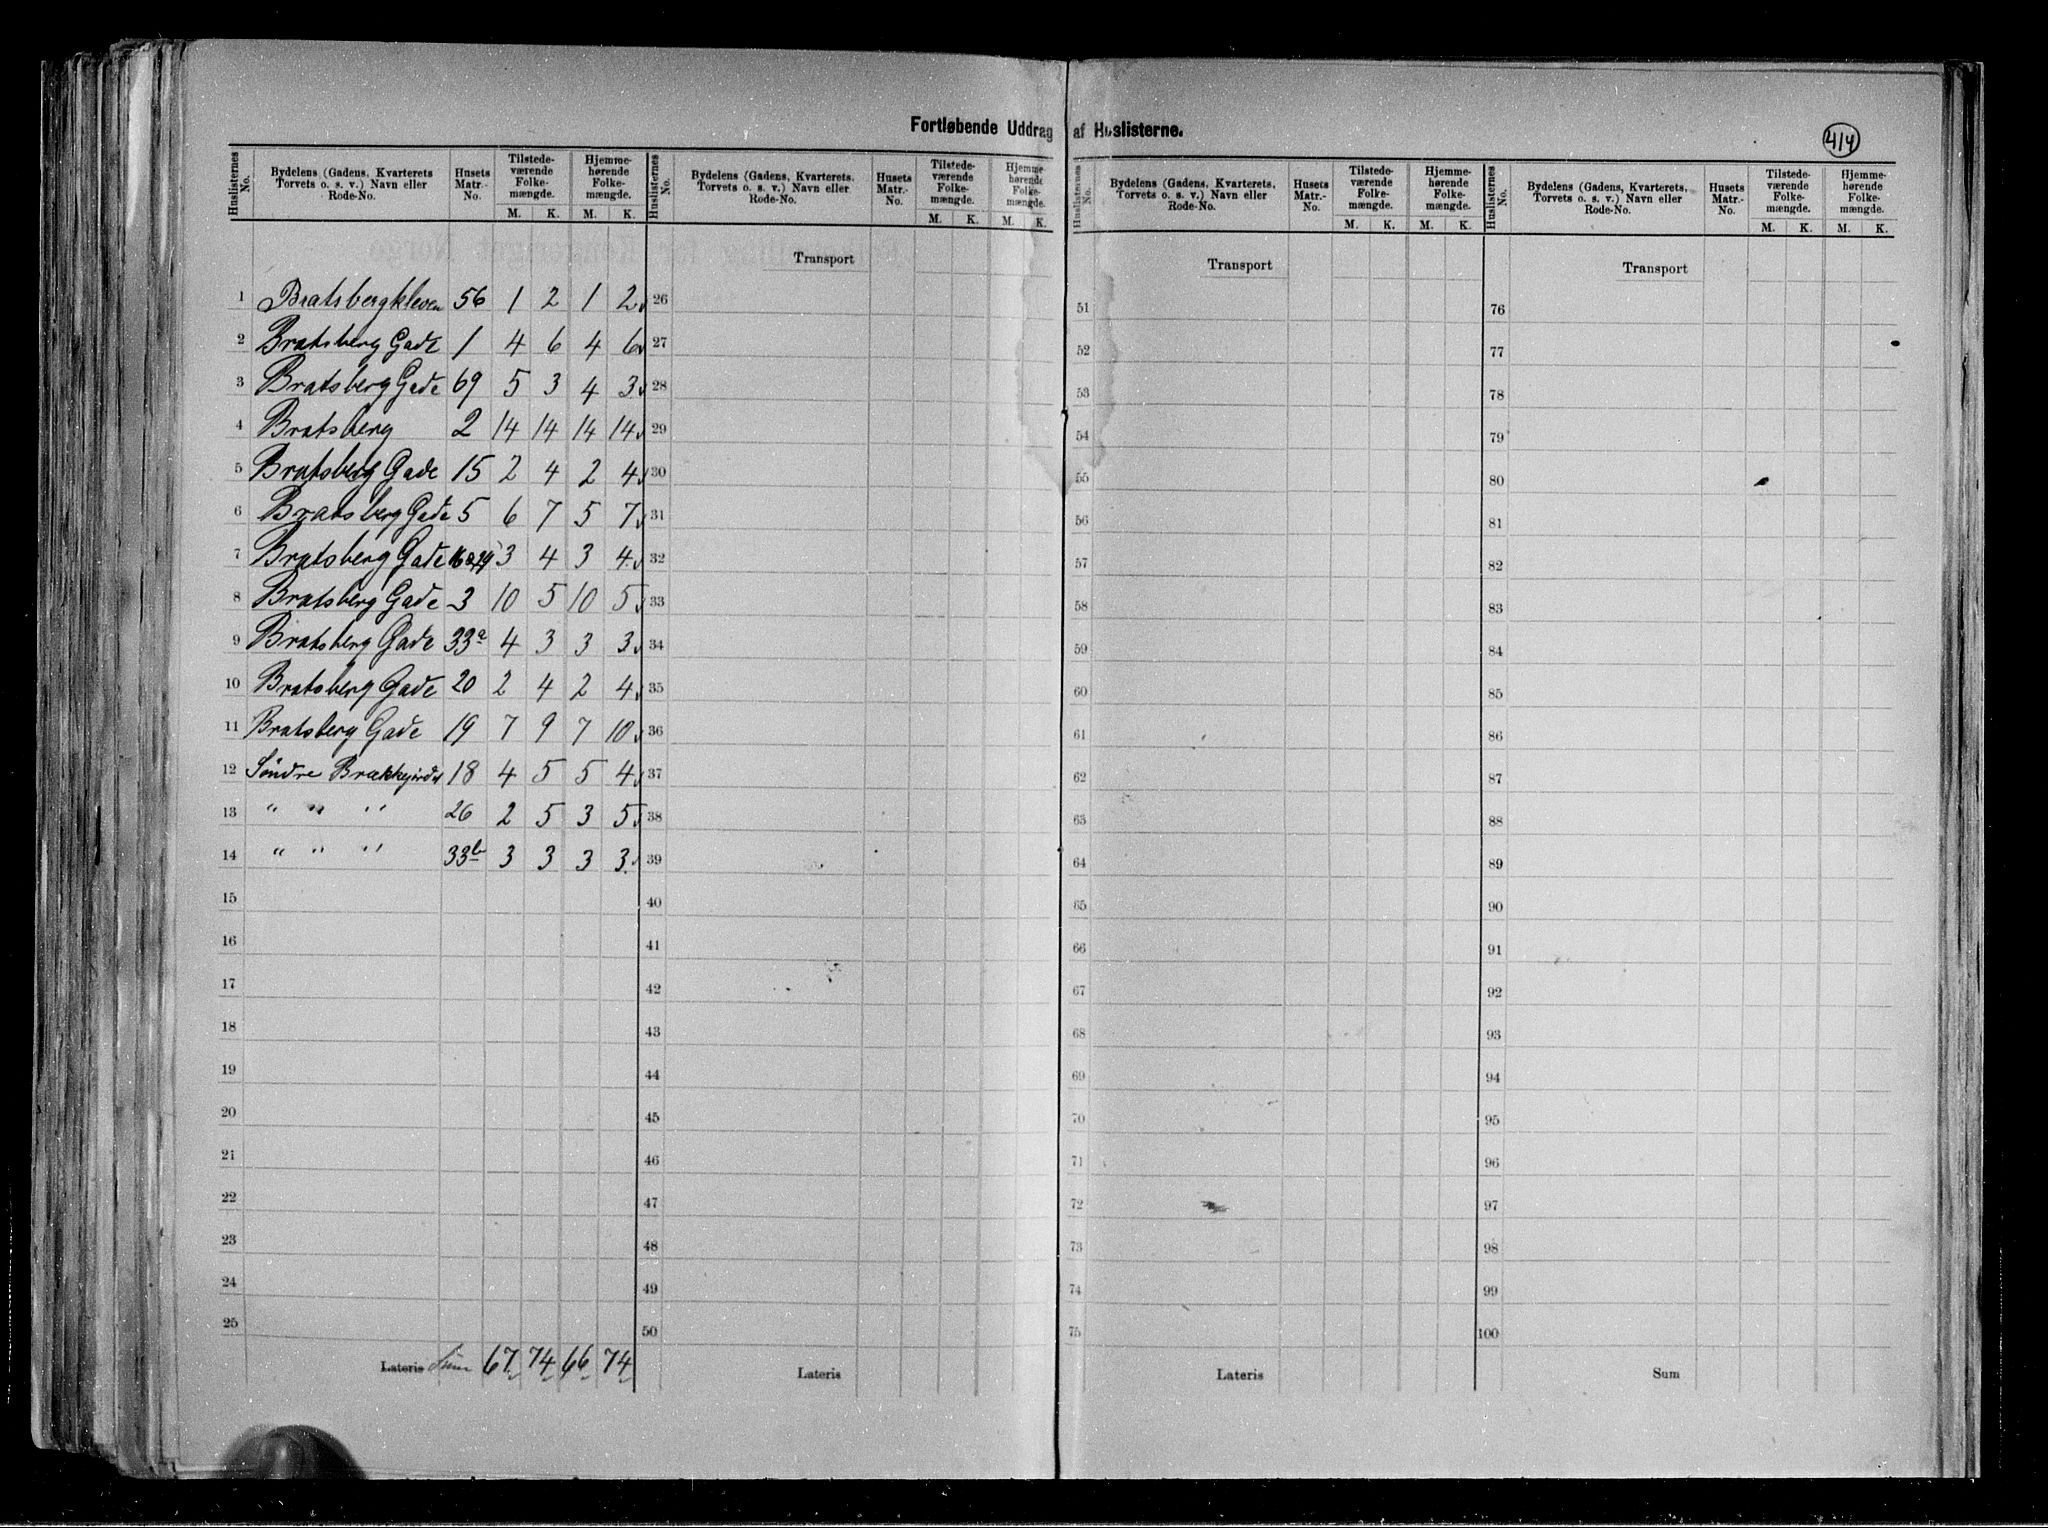 Fortløbende Uddrag af Huslisterne.
414
Huslisternes No. Bydelens (Gadens, Kvarterets, Torvets o. s. v.) Navn eller Rode-No. Husets Matr.-No. Tilstede-værende Folke-mængde. M. K. Hjemme-hørende Folke-mængde. M. K.
Huslisternes No. Bydelens (Gadens, Kvarterets, Torvets o. s. v.) Navn eller Rode-No. Husets Matr.-No. Tilstede-værende Folke-mængde. M. K. Hjemme-hørende Folke-mængde. M. K.
Huslisternes No. Bydelens (Gadens, Kvarterets, Torvets o. s. v.) Navn eller Rode-No. Husets Matr.-No. Tilstede-værende Folke-mængde. M. K. Hjemme-hørende Folke-mængde. M. K.
Huslisternes No. Bydelens (Gadens, Kvarterets, Torvets o. s. v.) Navn eller Rode-No. Husets Matr.-No. Tilstede-værende Folke-mængde. M. K. Hjemme-hørende Folke-mængde. M. K.
Transport Transport Transport
1 Bratsbergkleven 56 1 2 1 2 26 51 76
2 Bratsberg Gade 1 4 6 4 6 27 52 77
3 Bratsberg Gade 69 5 3 4 3 28 53 78
4 Bratsberg 2 14 14 14 14 29 54 79
5 Bratsberg Gade 15 2 4 2 4 30 55 80
6 Bratsberg Gade 5 6 7 5 7 31 56 81
7 Bratsberg Gade 3 4 3 4 32 57 82
8 Bratsberg Gade 3 10 5 10 5 33 58 83
9 Bratsberg Gade 33a 4 3 3 3 34 59 84
10 Bratsberg Gade 20 2 4 2 4 35 60 85
11 Bratsberg Gade 19 7 9 7 10 36 61 86
12 Søndre Brækkejordet 18 4 5 5 4 37 62 87
13 " " " 26 2 5 3 5 38 63 88
14 " " " 33b 3 3 3 3 39 64 89
15 40 65 90
16 41 66 91
17 42 67 92
18 43 68 93
19 44 69 94
20 45 70 95
21 46 71 96
22 47 72 97
23 48 73 98
24 49 74 99
25 50 75 100
Lateris Sum 67 74 66 74 Lateris Lateris Sum